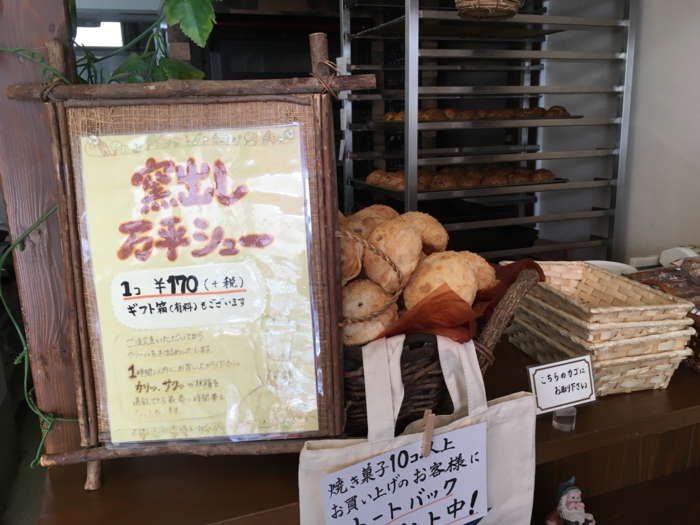 窯出し
万平シュー
1コ ¥170 (+税)
ギフト箱(有料)もございます
ご注文をいただいてから
クリームをお詰めいたします。
1時間以内にお召し上がり下さい。
カリッ、サクッの状態を
こちらのカゴに
お取り下さい
焼き菓子10コ以上
お買い上げのお客様に
トートバック
中!